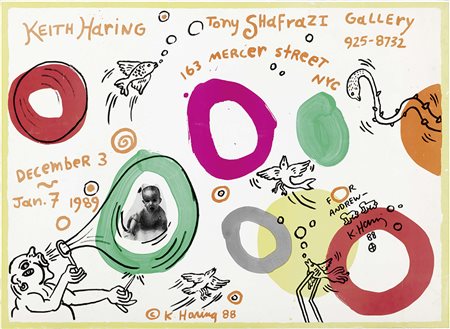 KEITH HARING
Tony SHAFRAZI GALLERY
925-8732
163 MERCER STREET
NYC
DECEMBER 3
~
Jan. 7 1989
FOR
ANDREW-
K. Haring
88
© K. Haring 88